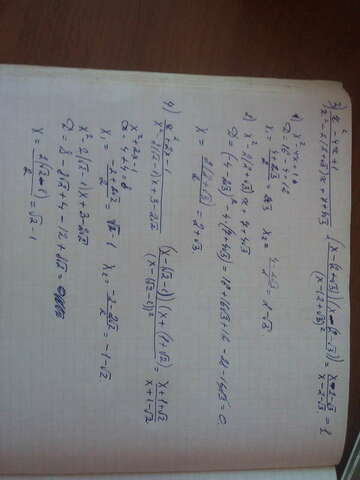 3) x²-4x+1 / x²-2(2+√3)x+7+4√3 (x-(2+√3))(x-(2-√3)) / (x-(2+√3))² = x-2-√3 / x-2-√3 = 1
1) x²-4x+1=0
D=16-4=12
x₁=4+2√3/2=2+√3 x₂=4-2√3/2=2-√3
2) x²-2(2+√3)x+7+4√3
D=(-4-2√3)²-4·(7+4√3)=16+16√3+12-28-16√3=0
x=2(2+√3)/2=2+√3.
4) x²+2x-1 / x²-2(√2-1)x+3-2√2 (x-√2+1)(x+(1+√2)) / (x-√2+1)² = x+1+√2 / x+1-√2
x²+2x-1
D=4+4=8
x₁=-2+2√2/2=√2-1 x₂=-2-2√2/2=-1-√2
x²-2(√2-1)x+3-2√2
D=8-8√2+4-12+8√2=0
x=2(√2-1)/2=√2-1